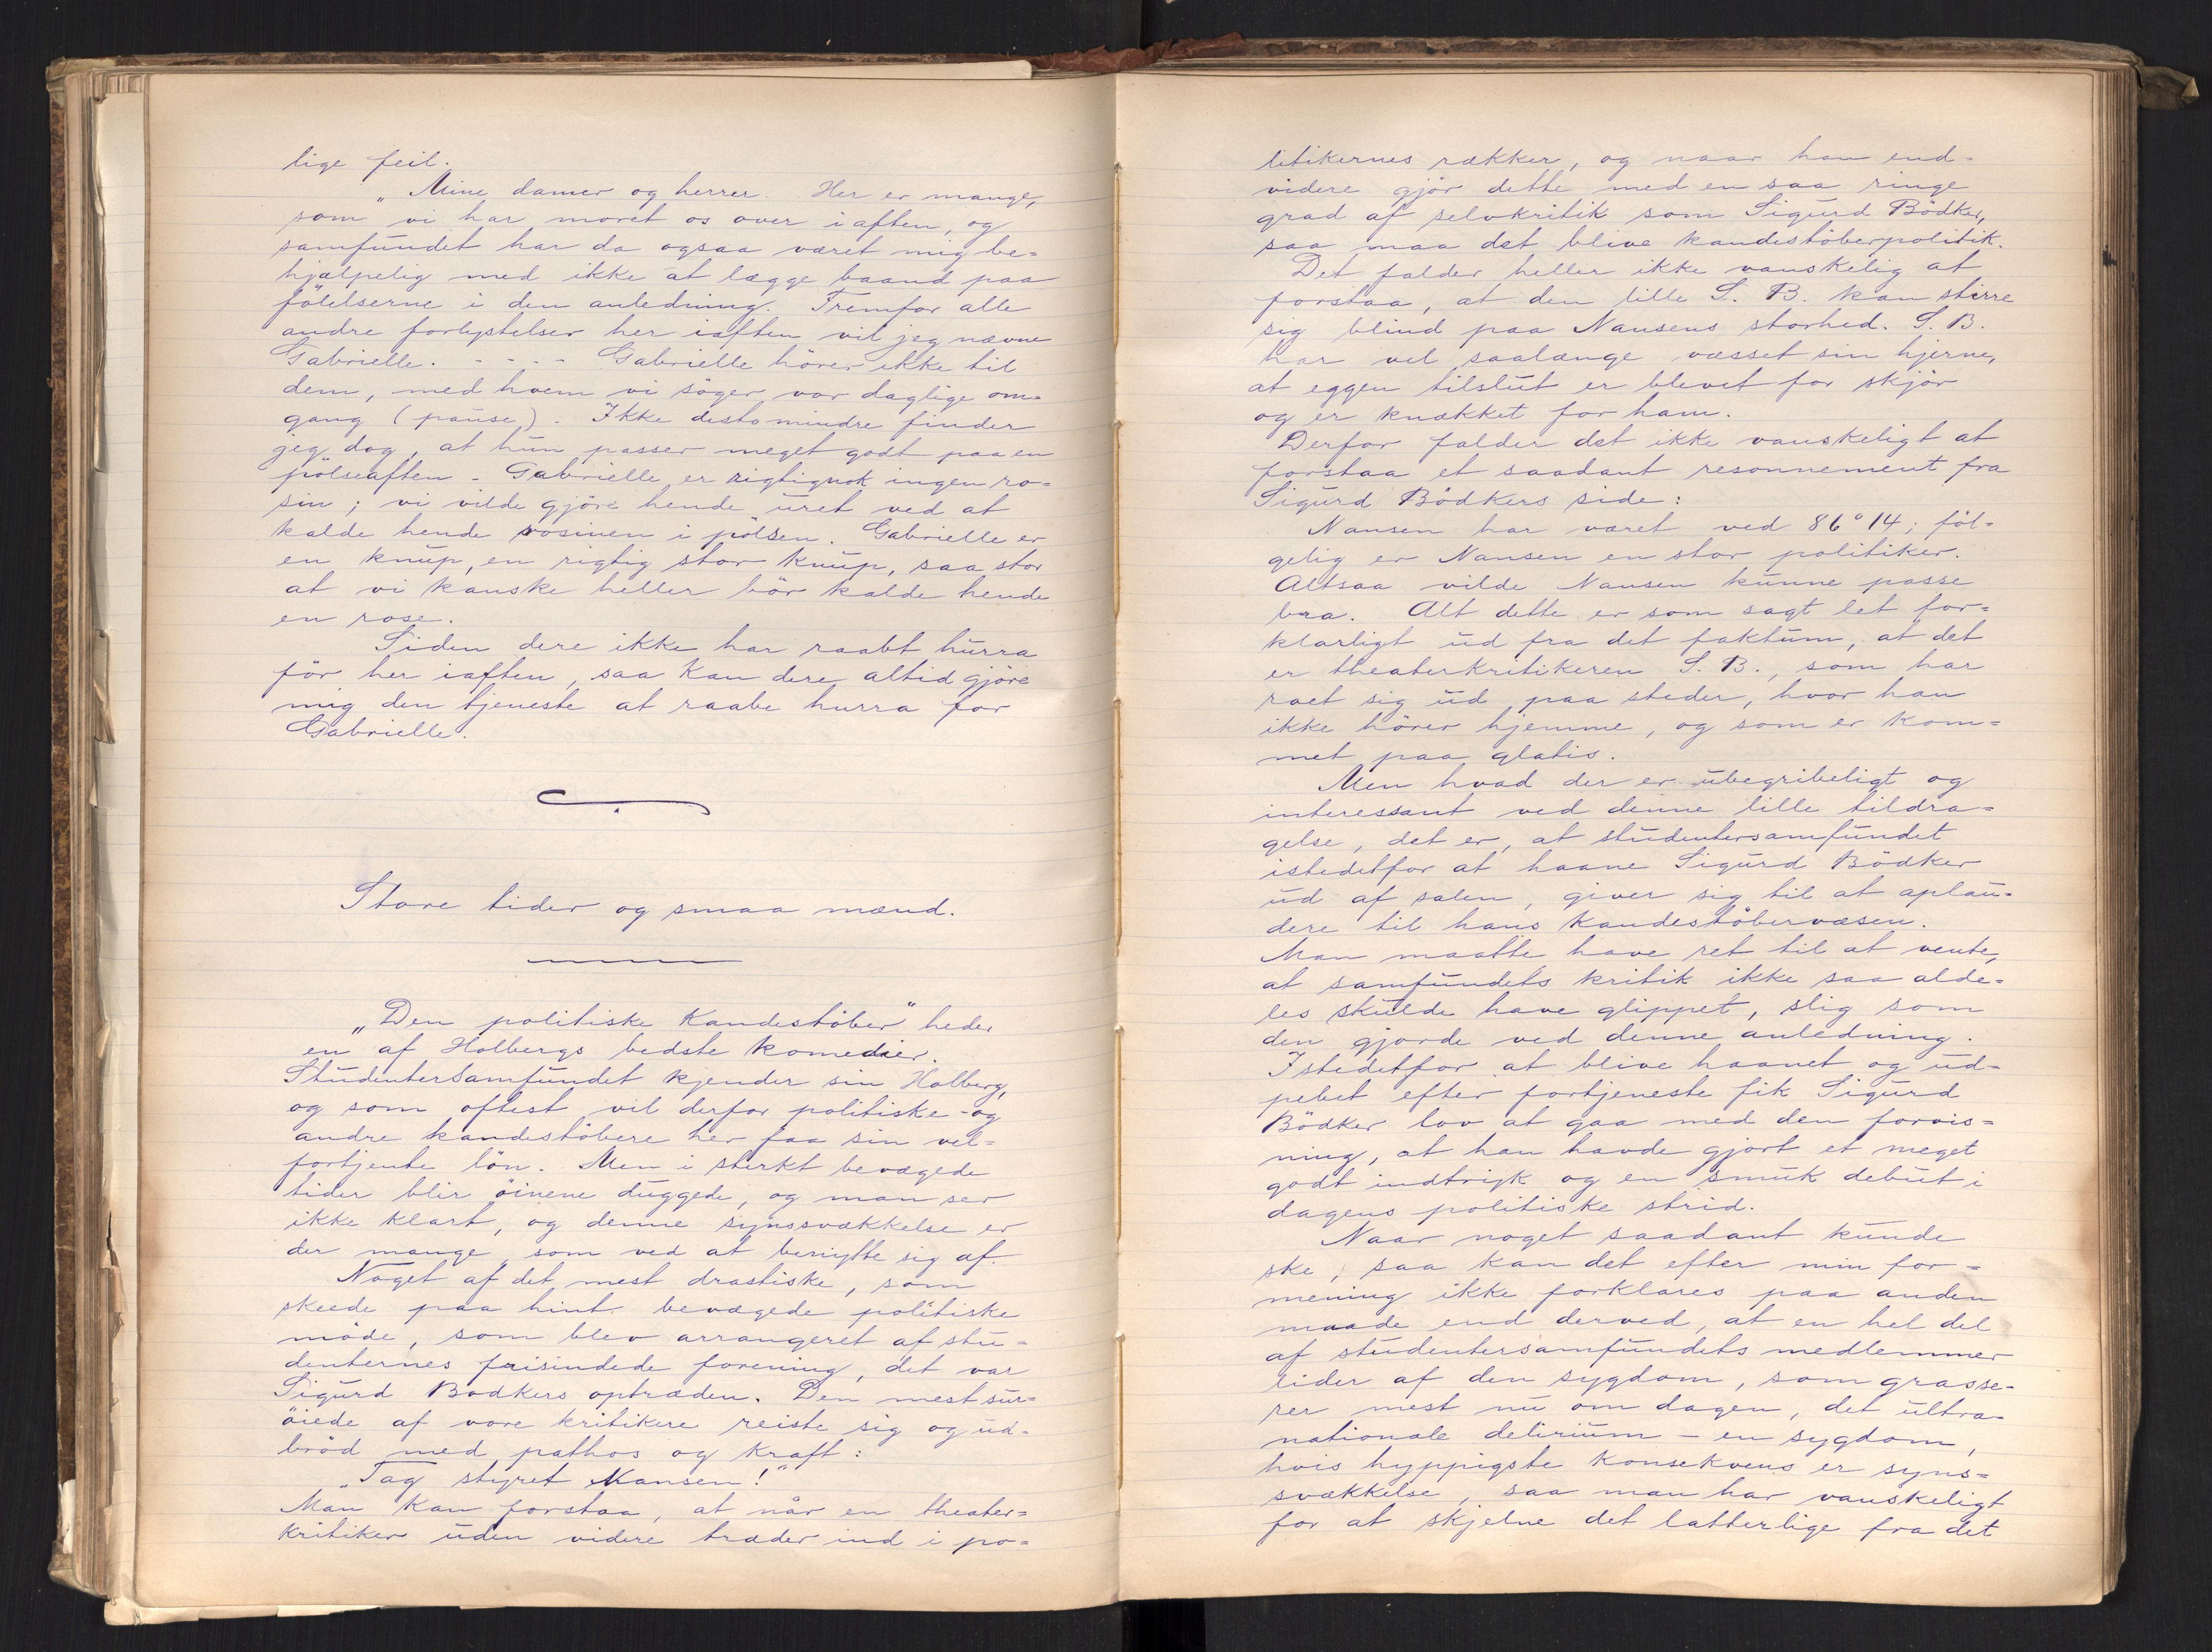 lige feil.
„Mine damer og herrer. Her er mange,
som vi har moret os over i aften, og
samfundet har da ogsaa været mig be=
hjælpelig med ikke at lægge baand paa
fölelserne i den anledning. Fremfor alle
andre forlystelser her iaften vil jeg nævne
Gabrielle. - - - - Gabrielle hörer ikke til
dem, med hvem vi söger vor daglige om=
gang (pause). Ikke destomindre finder
jeg dog, at hun passer meget godt paa en
pölseaften - Gabrielle er rigtignok ingen ro=
sin; vi vilde gjöre hende uret ved at
kalde hende rosinen i pölsen. Gabrielle er
en knup, en rigtig stor knup, saa stor
at vi kanske heller bör kalde hende
en rose.
Siden dere ikke har raabt hurra
för her iaften, saa kan dere altid gjöre
mig den tjeneste at raabe hurra for
Gabrielle.
Store tider og smaa mænd.
„Den politiske Kandestöber" heder
en af Holbergs bedste komedier.
Studentersamfundet kjender sin Holberg,
og som oftest vil derfor politiske - og
andre kandestöbere her faa sin vel=
fortjente lön. Men i sterkt bevægede
tider blir öinene duggede, og man ser
ikke klart, og denne synssvækkelse er
der mange, som ved at benytte sig af.
Noget af det mest drastiske, som
skeede paa hint bevægede politiske
möde, som blev arrangeret af stu=
denternes frisindede forening, det var
Sigurd Bödkers optræden. Den mest sur=
öiede af vore kritikere reiste sig og ud=
bröd med pathos og kraft:
„Tag styret Nansen!"
Man kan forstaa, at når en theater=
kritiker uden videre træder ind i po=
litikernes rækker, og naar han end=
videre gjör dette med en saa ringe
grad af selvkritik som Sigurd Bödker,
saa maa det blive kandestöberpolitik.
Det falder heller ikke vanskelig at
forstaa, at den lille S. B. kan stirre
sig blind paa Nansens storhed. S. B.
har vel saalænge væsset sin hjerne,
at eggen tilslut er blevet for skjör
og er knækket for ham.
Derfor falder det ikke vanskeligt at
forstaa et saadant resonnement fra
Sigurd Bödkers side:
Nansen har været ved 86° 14; föl=
gelig er Nansen en stor politiker.
Altsaa vilde Nansen kunne passe
bra. Alt dette er som sagt let for=
klarligt ud fra det faktum, at det
er theaterkritikeren S. B., som har
roet sig ud paa steder, hvor han
ikke hörer hjemme, og som er kom=
met paa glatis.
Men hvad der er ubegribeligt og
interessant ved denne lille tildra=
gelse, det er, at studentersamfundet
istedetfor at haane Sigurd Bödker
ud af salen, giver sig til at aplau=
dere til hans kandestöbervæsen.
Man maatte have ret til at vente,
at samfundets kritik ikke saa alde=
les skulde have glippet, slig som
den gjorde ved denne anledning.
Istedetfor at blive haanet og ud=
pebet efter fortjeneste fik Sigurd
Bödker lov at gaa med den forvis=
ning, at han havde gjort et meget
godt indtryk og en smuk debut i
dagens politiske strid.
Naar noget saadant kunde
ske, saa kan det efter min for=
mening ikke forklares paa anden
maade end derved, at en hel del
af studentersamfundets medlemmer
lider af den sygdom, som grasse=
rer mest nu om dagen, det ultra=
nationale delirium - en sygdom,
hvis hyppigste konsekvens er syns=
svækkelse, saa man har vanskeligt
for at skjelne det latterlige fra det